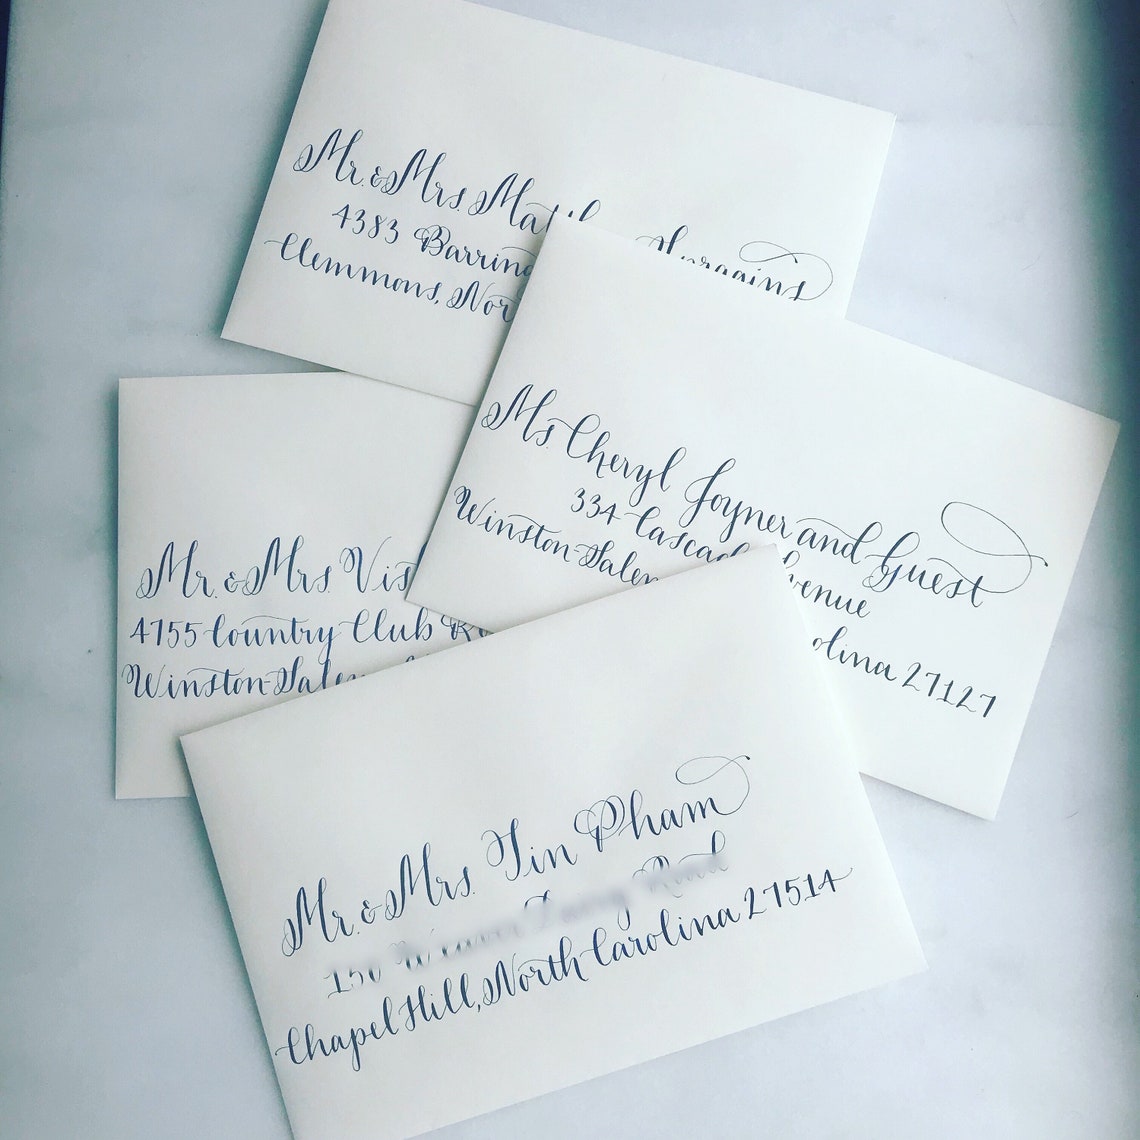 Mr. & Mrs. Mat
4383 Barring
Clemmons, Nor
Ms. Cheryl Joyner and Guest
334 Cascad venue
Winston-Salem rolina 27127
Mr. & Mrs. Vis
4755 Country Club R
Winston-Salem
Mr. & Mrs. Tin Pham
Chapel Hill, North Carolina 27514